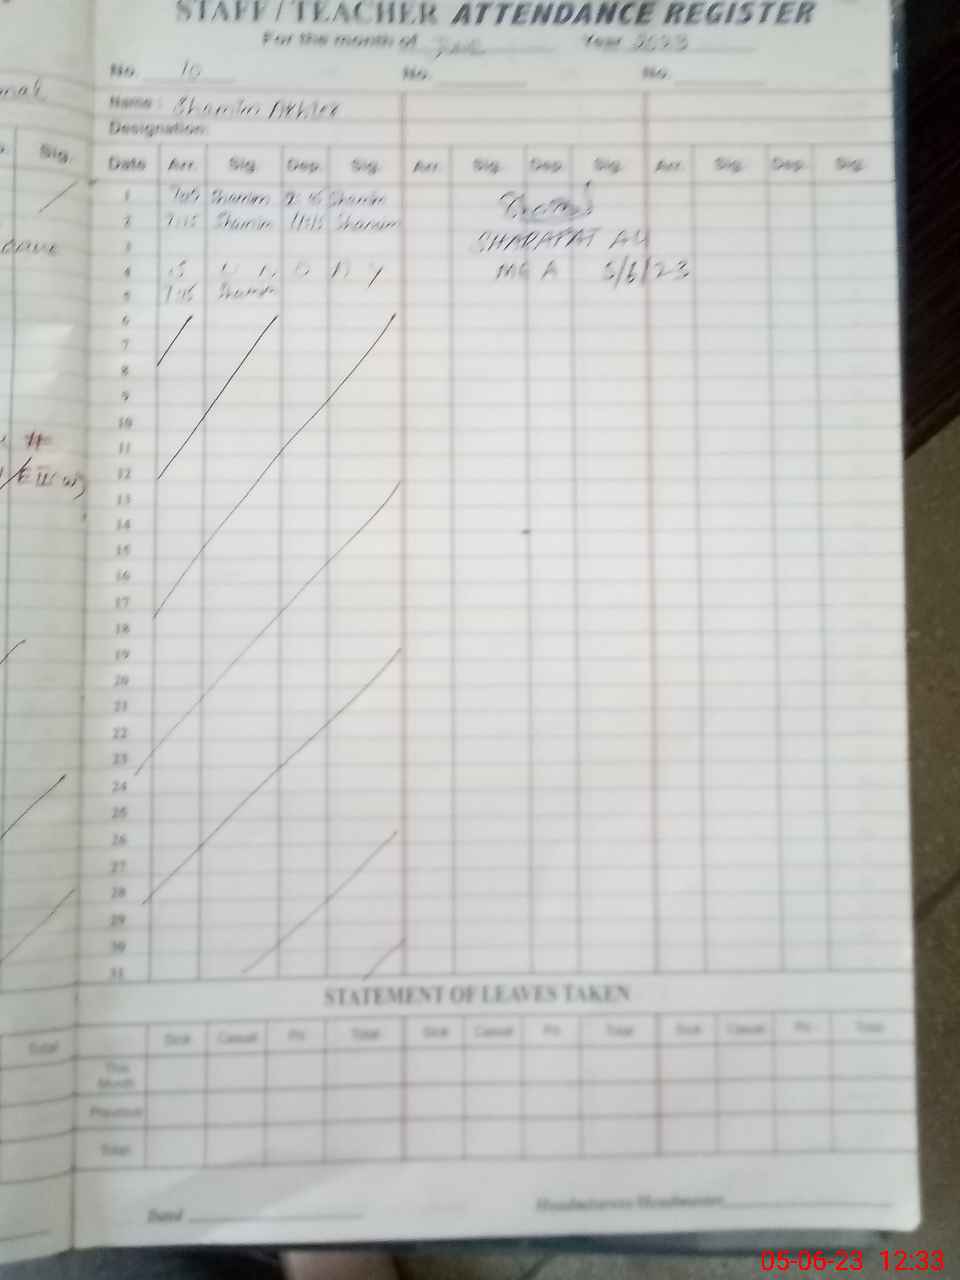 STAFF / TEACHER ATTENDANCE REGISTER
For the month of June Year 2023
No. 10 No. No.
Name: Shamim Akhter
Designation:
Sig. Date Arr. Sig. Dep. Sig. Arr. Sig. Dep. Sig. Arr. Sig. Dep. Sig.
1 Shamim Shamim
2 7:15 Shamim 11:15 Shamim
3 SHARAFAT ALI
4 S U N D A Y MEA 5/6/23
5 7:15 Shamim
6
7
8
9
10
11
12
13
14
15
16
17
18
19
20
21
22
23
24
25
26
27
28
29
30
31
STATEMENT OF LEAVES TAKEN
Total Sick Casual Pri. Total Sick Casual Pri. Total Sick Casual Pri. Total
This Month
Previous
Total
Dated Headmistress/Headmaster
05-06-23 12:33